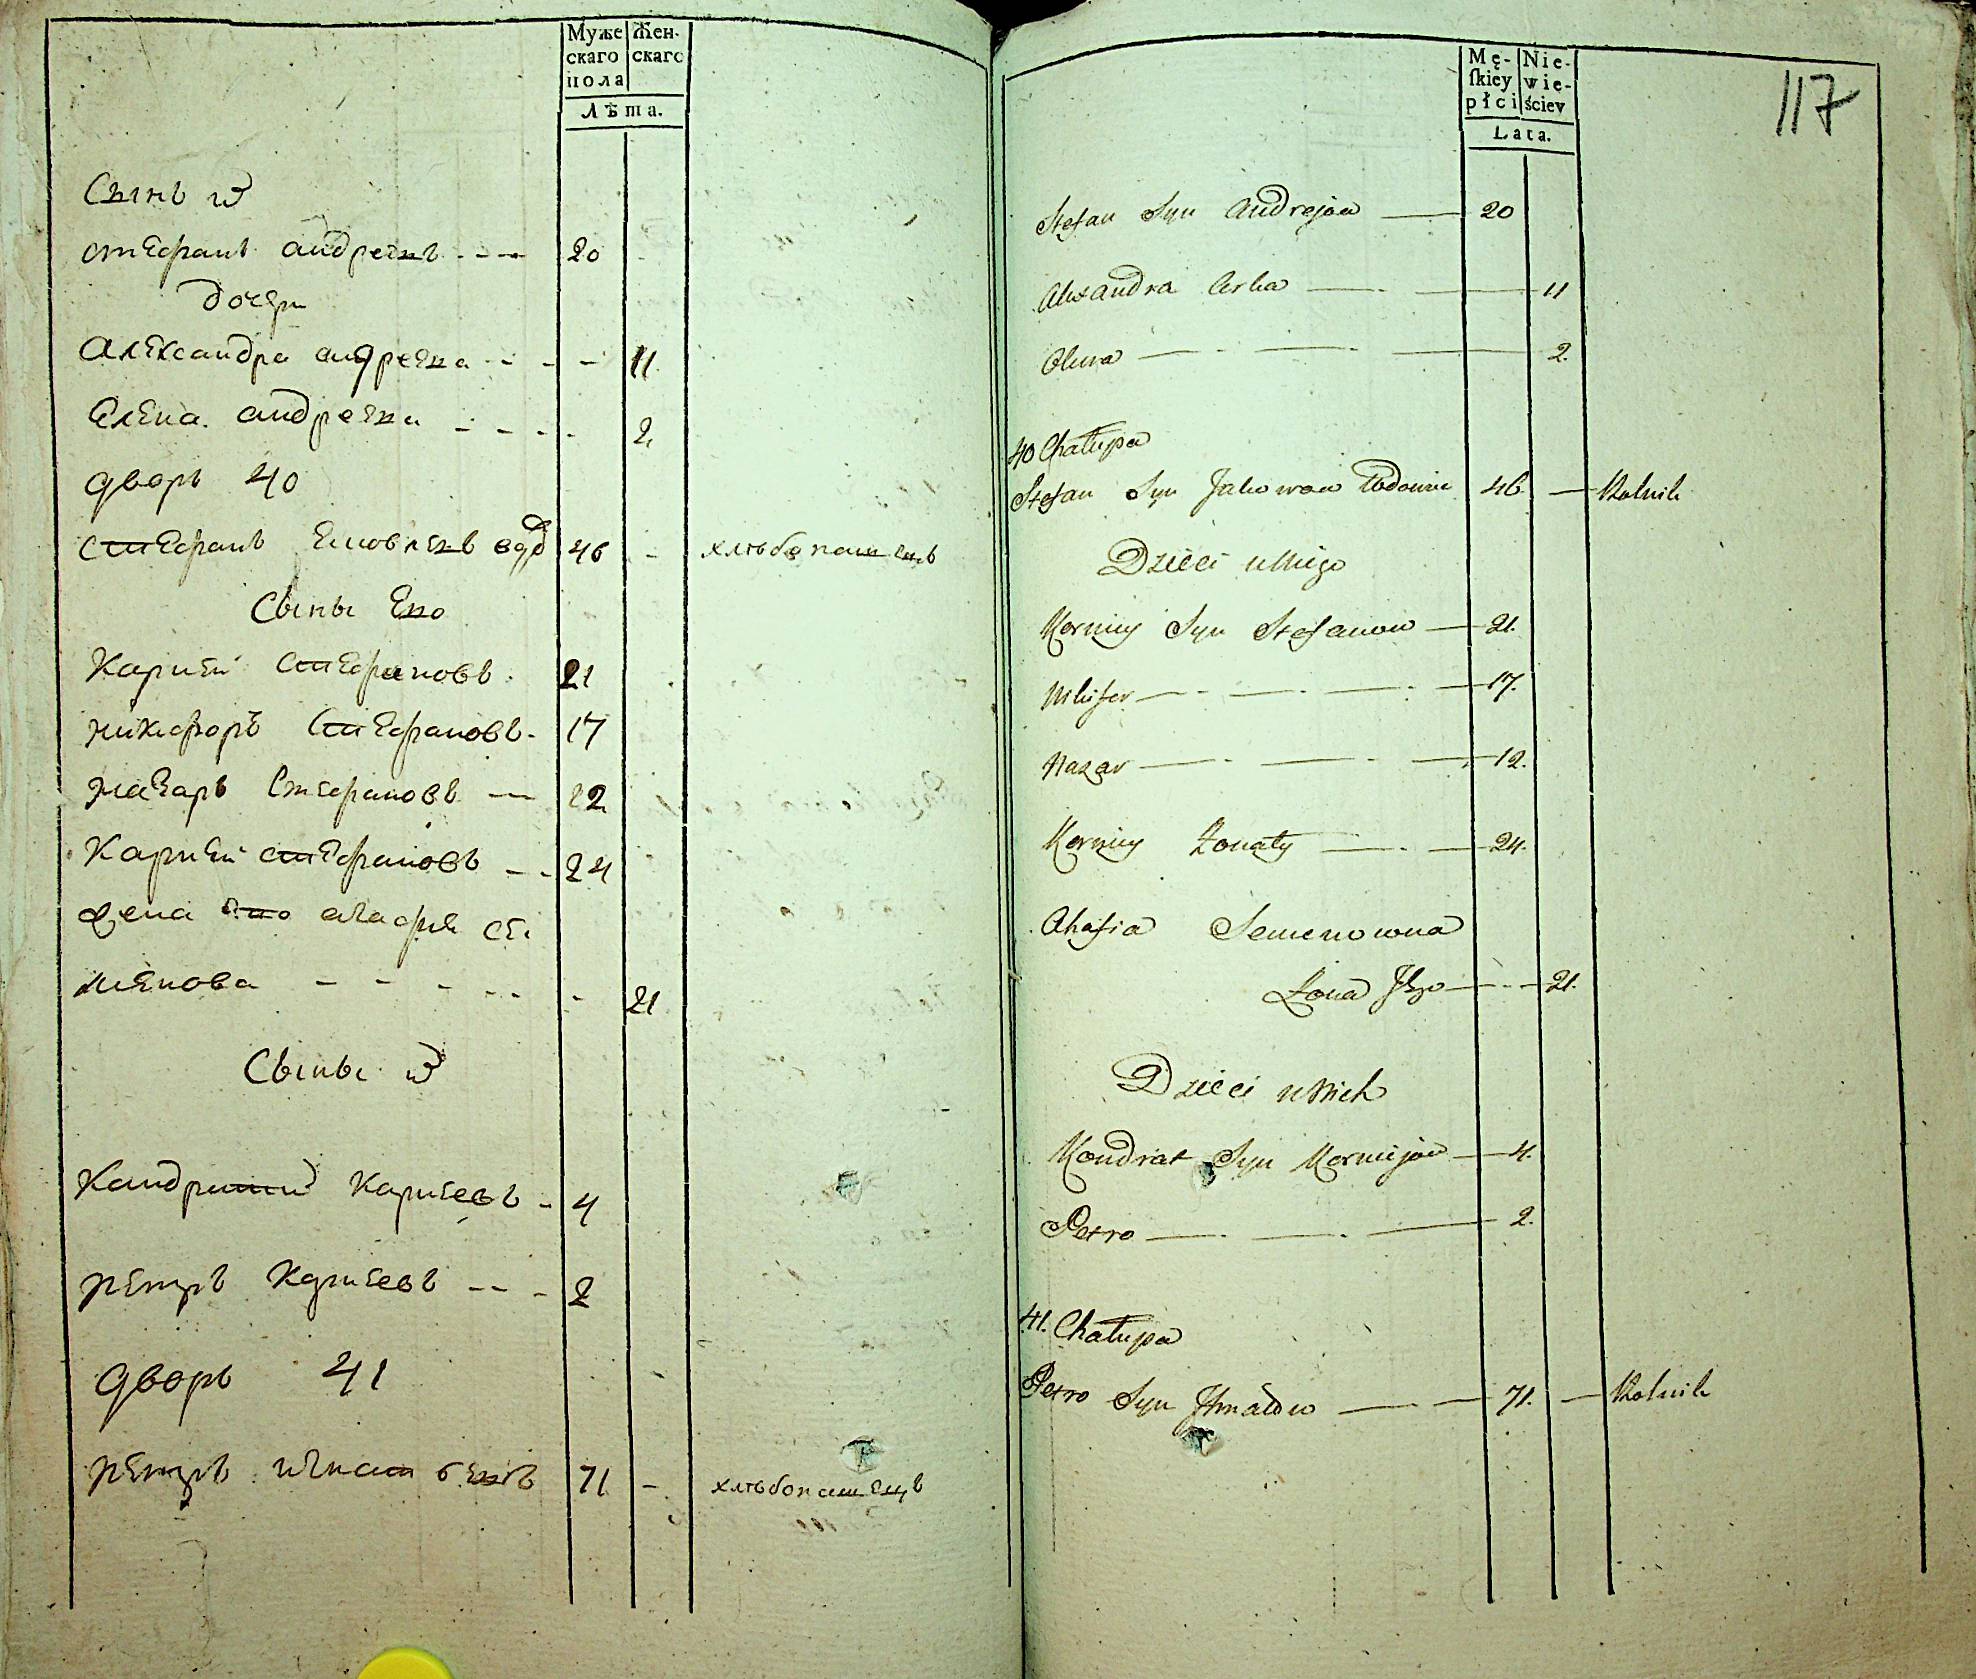 Муже
скаго
пола
Жен-
скаго
Лѣта.
Сынъ
стефанъ андреевъ - - - 20
дочери
Александра андреева - - - - 11
Елена андреева - - - - 2
дворъ 40
Стефанъ вдо 46 - хлѣбопашецъ
Сыны его
Карней Стефановъ 21
никифоръ Стефановъ - 17
назаръ Стефановъ - 12
Карней стефановъ - - 24
жена его агафия се
менова - - - - - - 21
Сыны
Кандратий Карнеевъ - 4
петръ Карнеевъ - - - 2
дворъ 41
петръ 71 - хлѣбопашецъ
Mę-
ſkiey
płci
Nie-
wie-
ściey
Lata.
117
Stefan Syn Andrejow — 20
Alexandra Corka — 11
Olena — 2.
40 Chałupa
Stefan Syn Jakowow Wdowiec 46 — Rolnik
Dzieci u Niego
Korniey Syn Stefanow — 21.
Nikifor — 17.
Nazar — 12.
Korniey Żonaty — 24.
Ahafia Semenowna
Żona Jego — 21.
Dzieci u Nich
Kondrat Syn Korniejow — 4.
Petro — 2.
41. Chałupa
Petro Syn Ihnatow — 71. — Rolnik